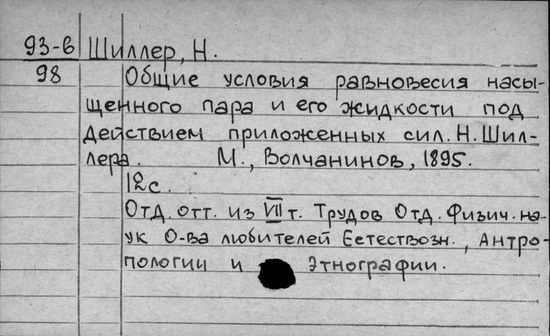 93-6 Шиллер, Н.
98 Общие условия равновесия насы-
щенного пара и его жидкости под
действием приложенных сил. Н. Шил-
лера. М., Волчанинов, 1895.
12 с.
Отд. отт. из VII т. Трудов Отд. Физич. на-
ук О-ва любителей Еетествозн., Антро-
пологии и Этнографии.